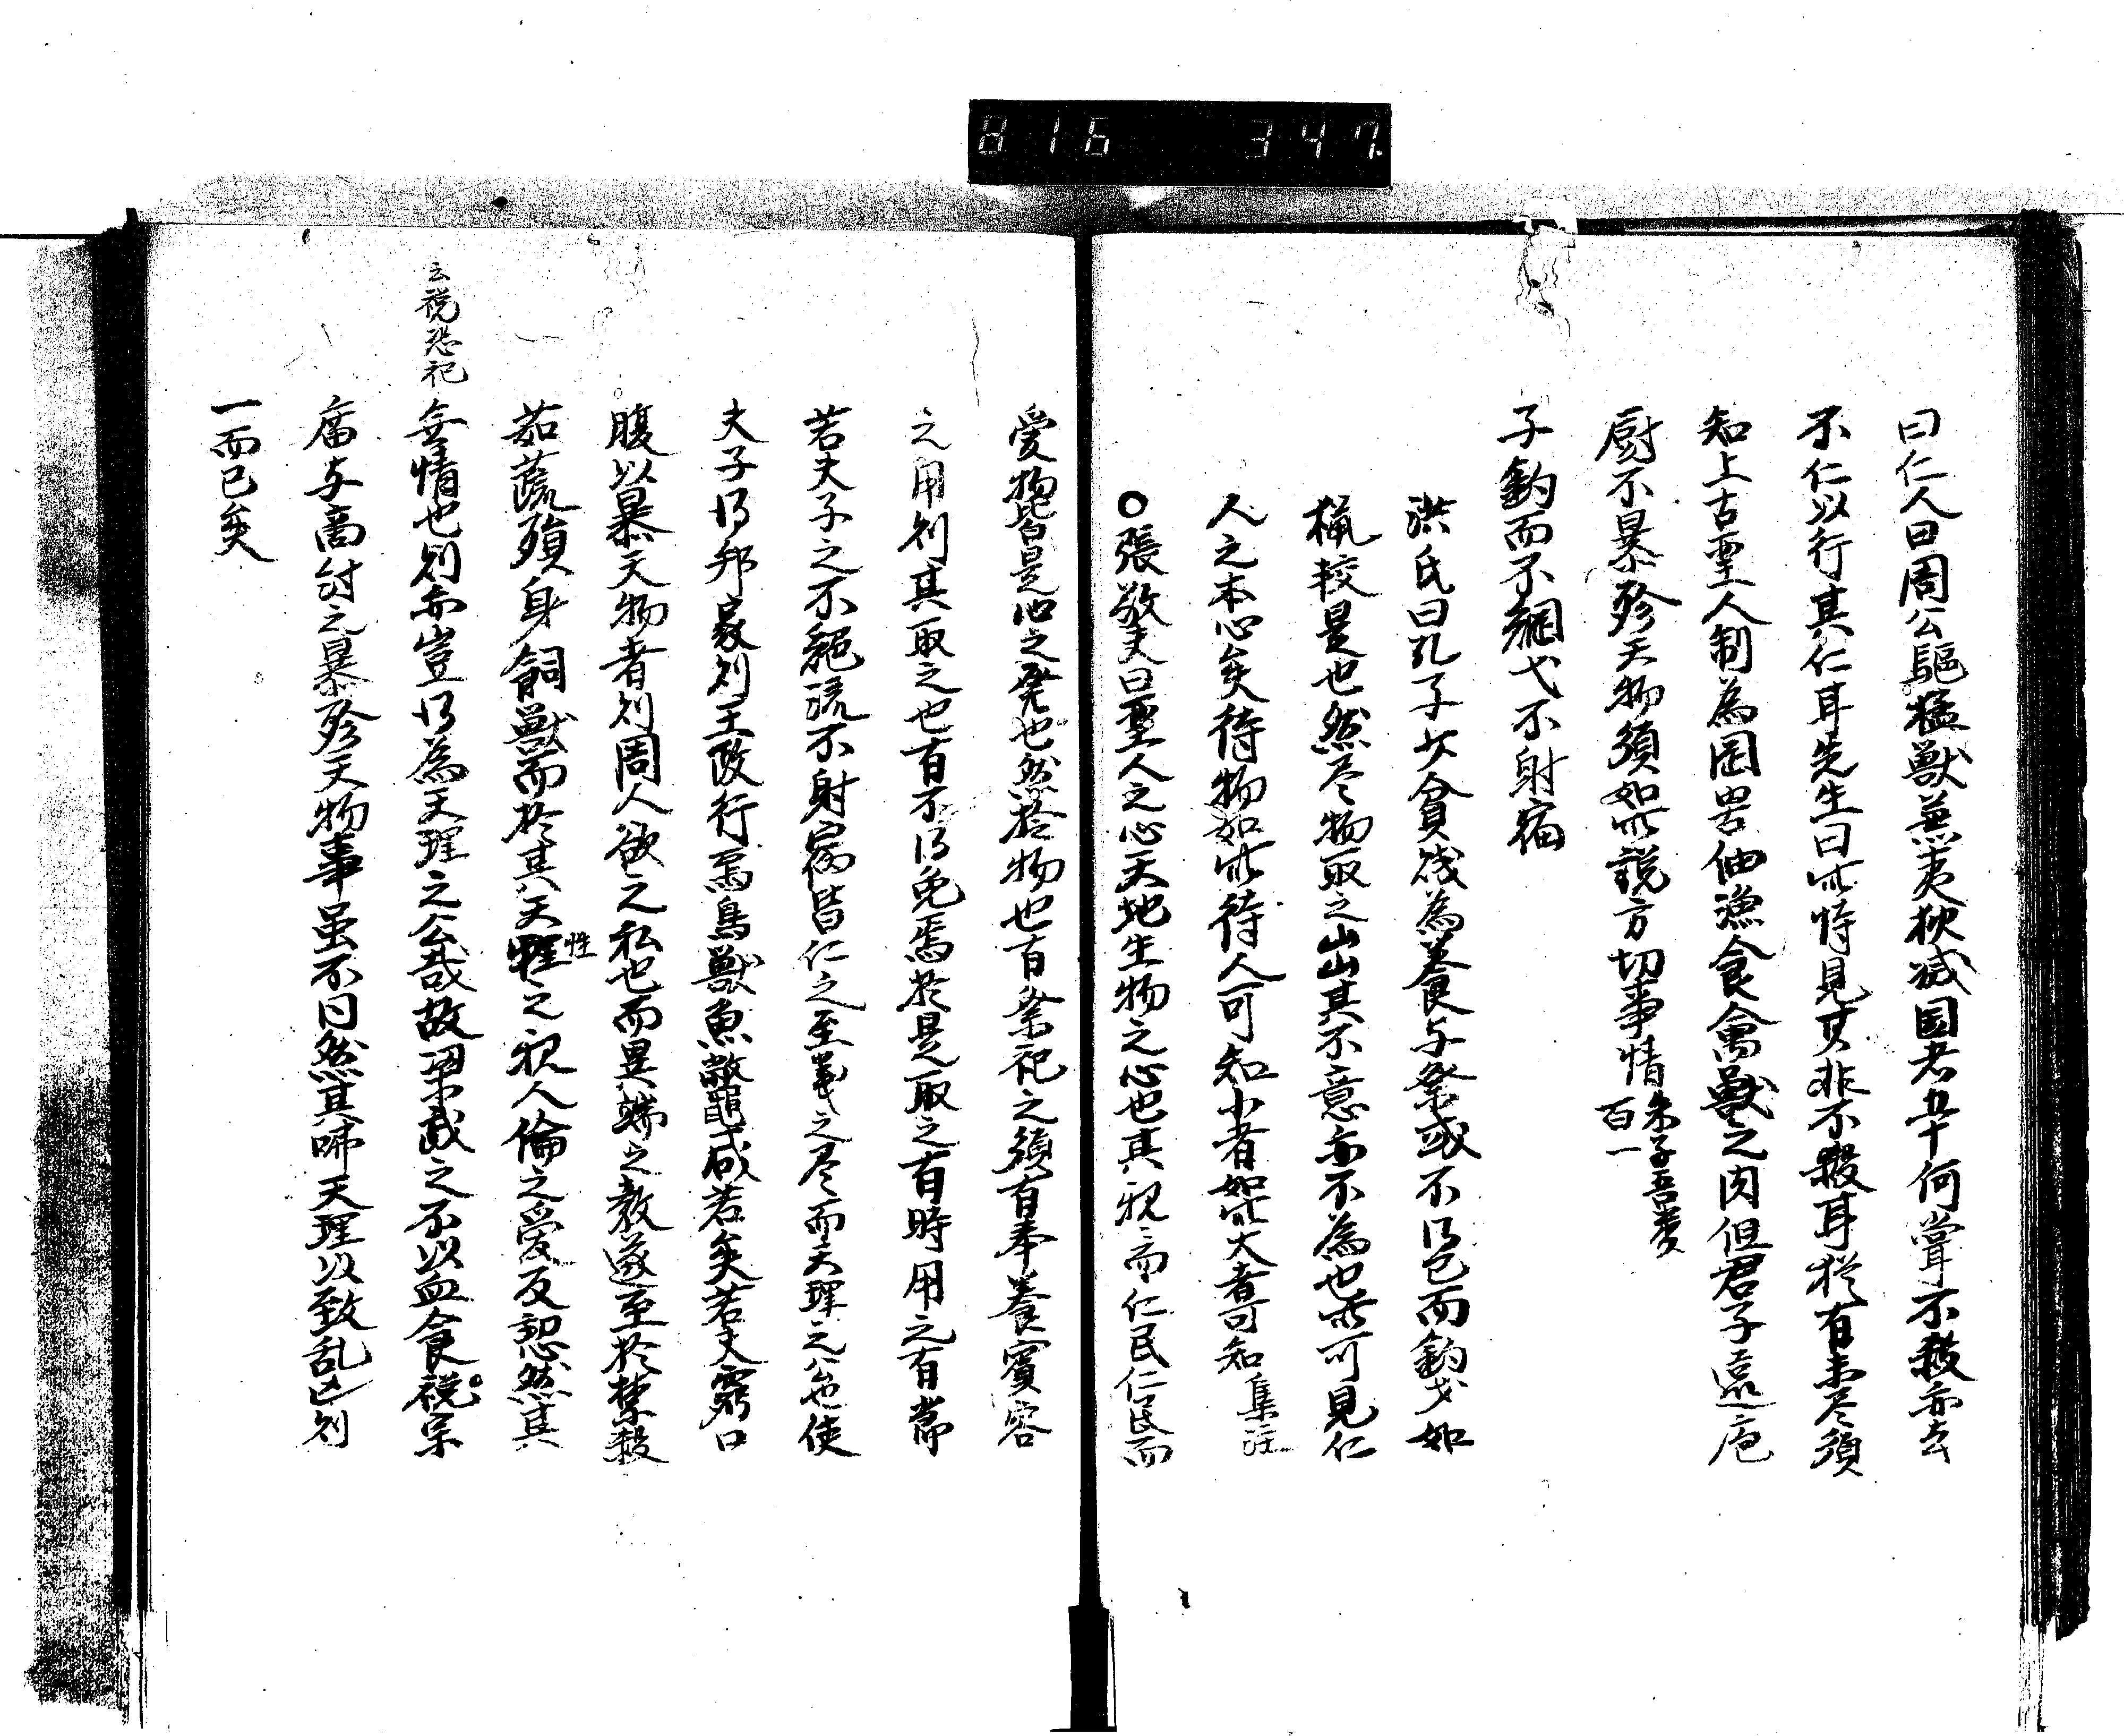 816 347.
曰仁人曰周公驅猛獣兼夷狄滅国者五十何嘗不殺亦去
不仁以行其仁耳先生曰此特見其非不殺耳猶有未尽須
知上古聖人制為罔罟佃漁食禽獣之肉但君子遠庖
厨不暴殄天物須如此説方切事情朱子語類
百一
子釣而不網弋不射宿
洪氏曰孔子少貧賤為養与祭或不得已而釣弋如
猟較是也然尽物取之出其不意亦不為也此可見仁
人之本心矣待物如此待人可知小者如此大者可知集注
○張敬夫曰聖人之心天地生物之心也其親之而仁民仁民而
愛物皆是心之発也然於物也有祭祀之須有奉養賓客
之用則其取之也有不得免焉於是取之有時用之有節
若夫子之不絶流不射宿皆仁之至義之尽而天理之公也使
夫子得邦家則王政行焉鳥獣魚鼈咸若矣若夫窮口
腹以暴天物者則固人欲之私也而異端之教遂至於禁殺
茹蔬殞身飼獣而於其天性之親人倫之愛反恝然其
性
無情也則亦豈得為天理之公哉故梁武之不以血食祝宗
云祝恐祀
庿与商紂之暴殄天物事虽不同然其咈天理以致乱亡則
一而已矣